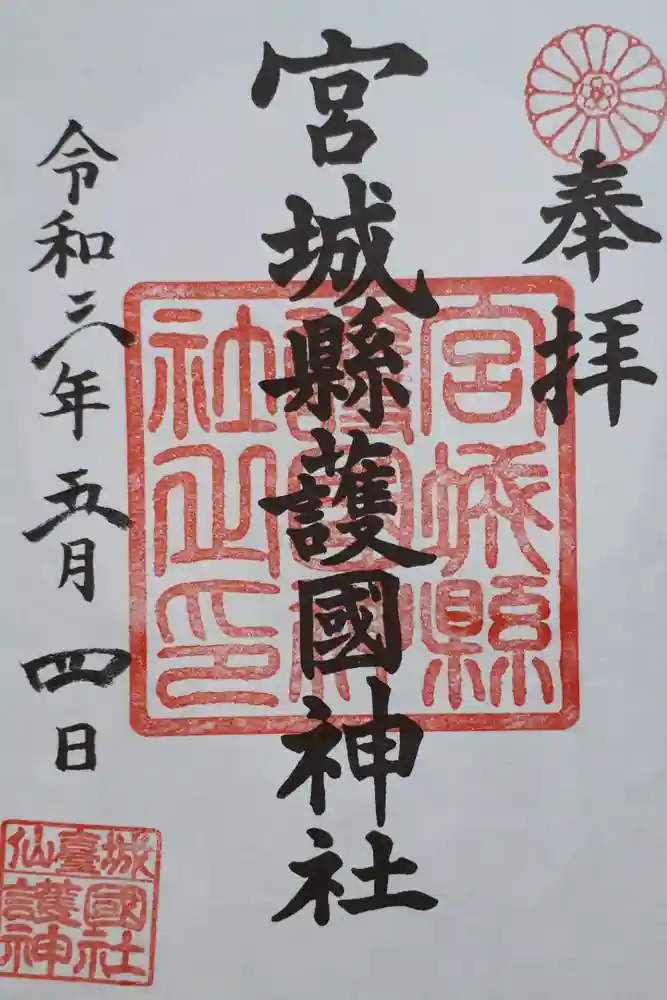 奉拝
宮城縣護國神社
宮城縣
護國神
社之印
令和三年五月四日
仙臺城
護國
神社